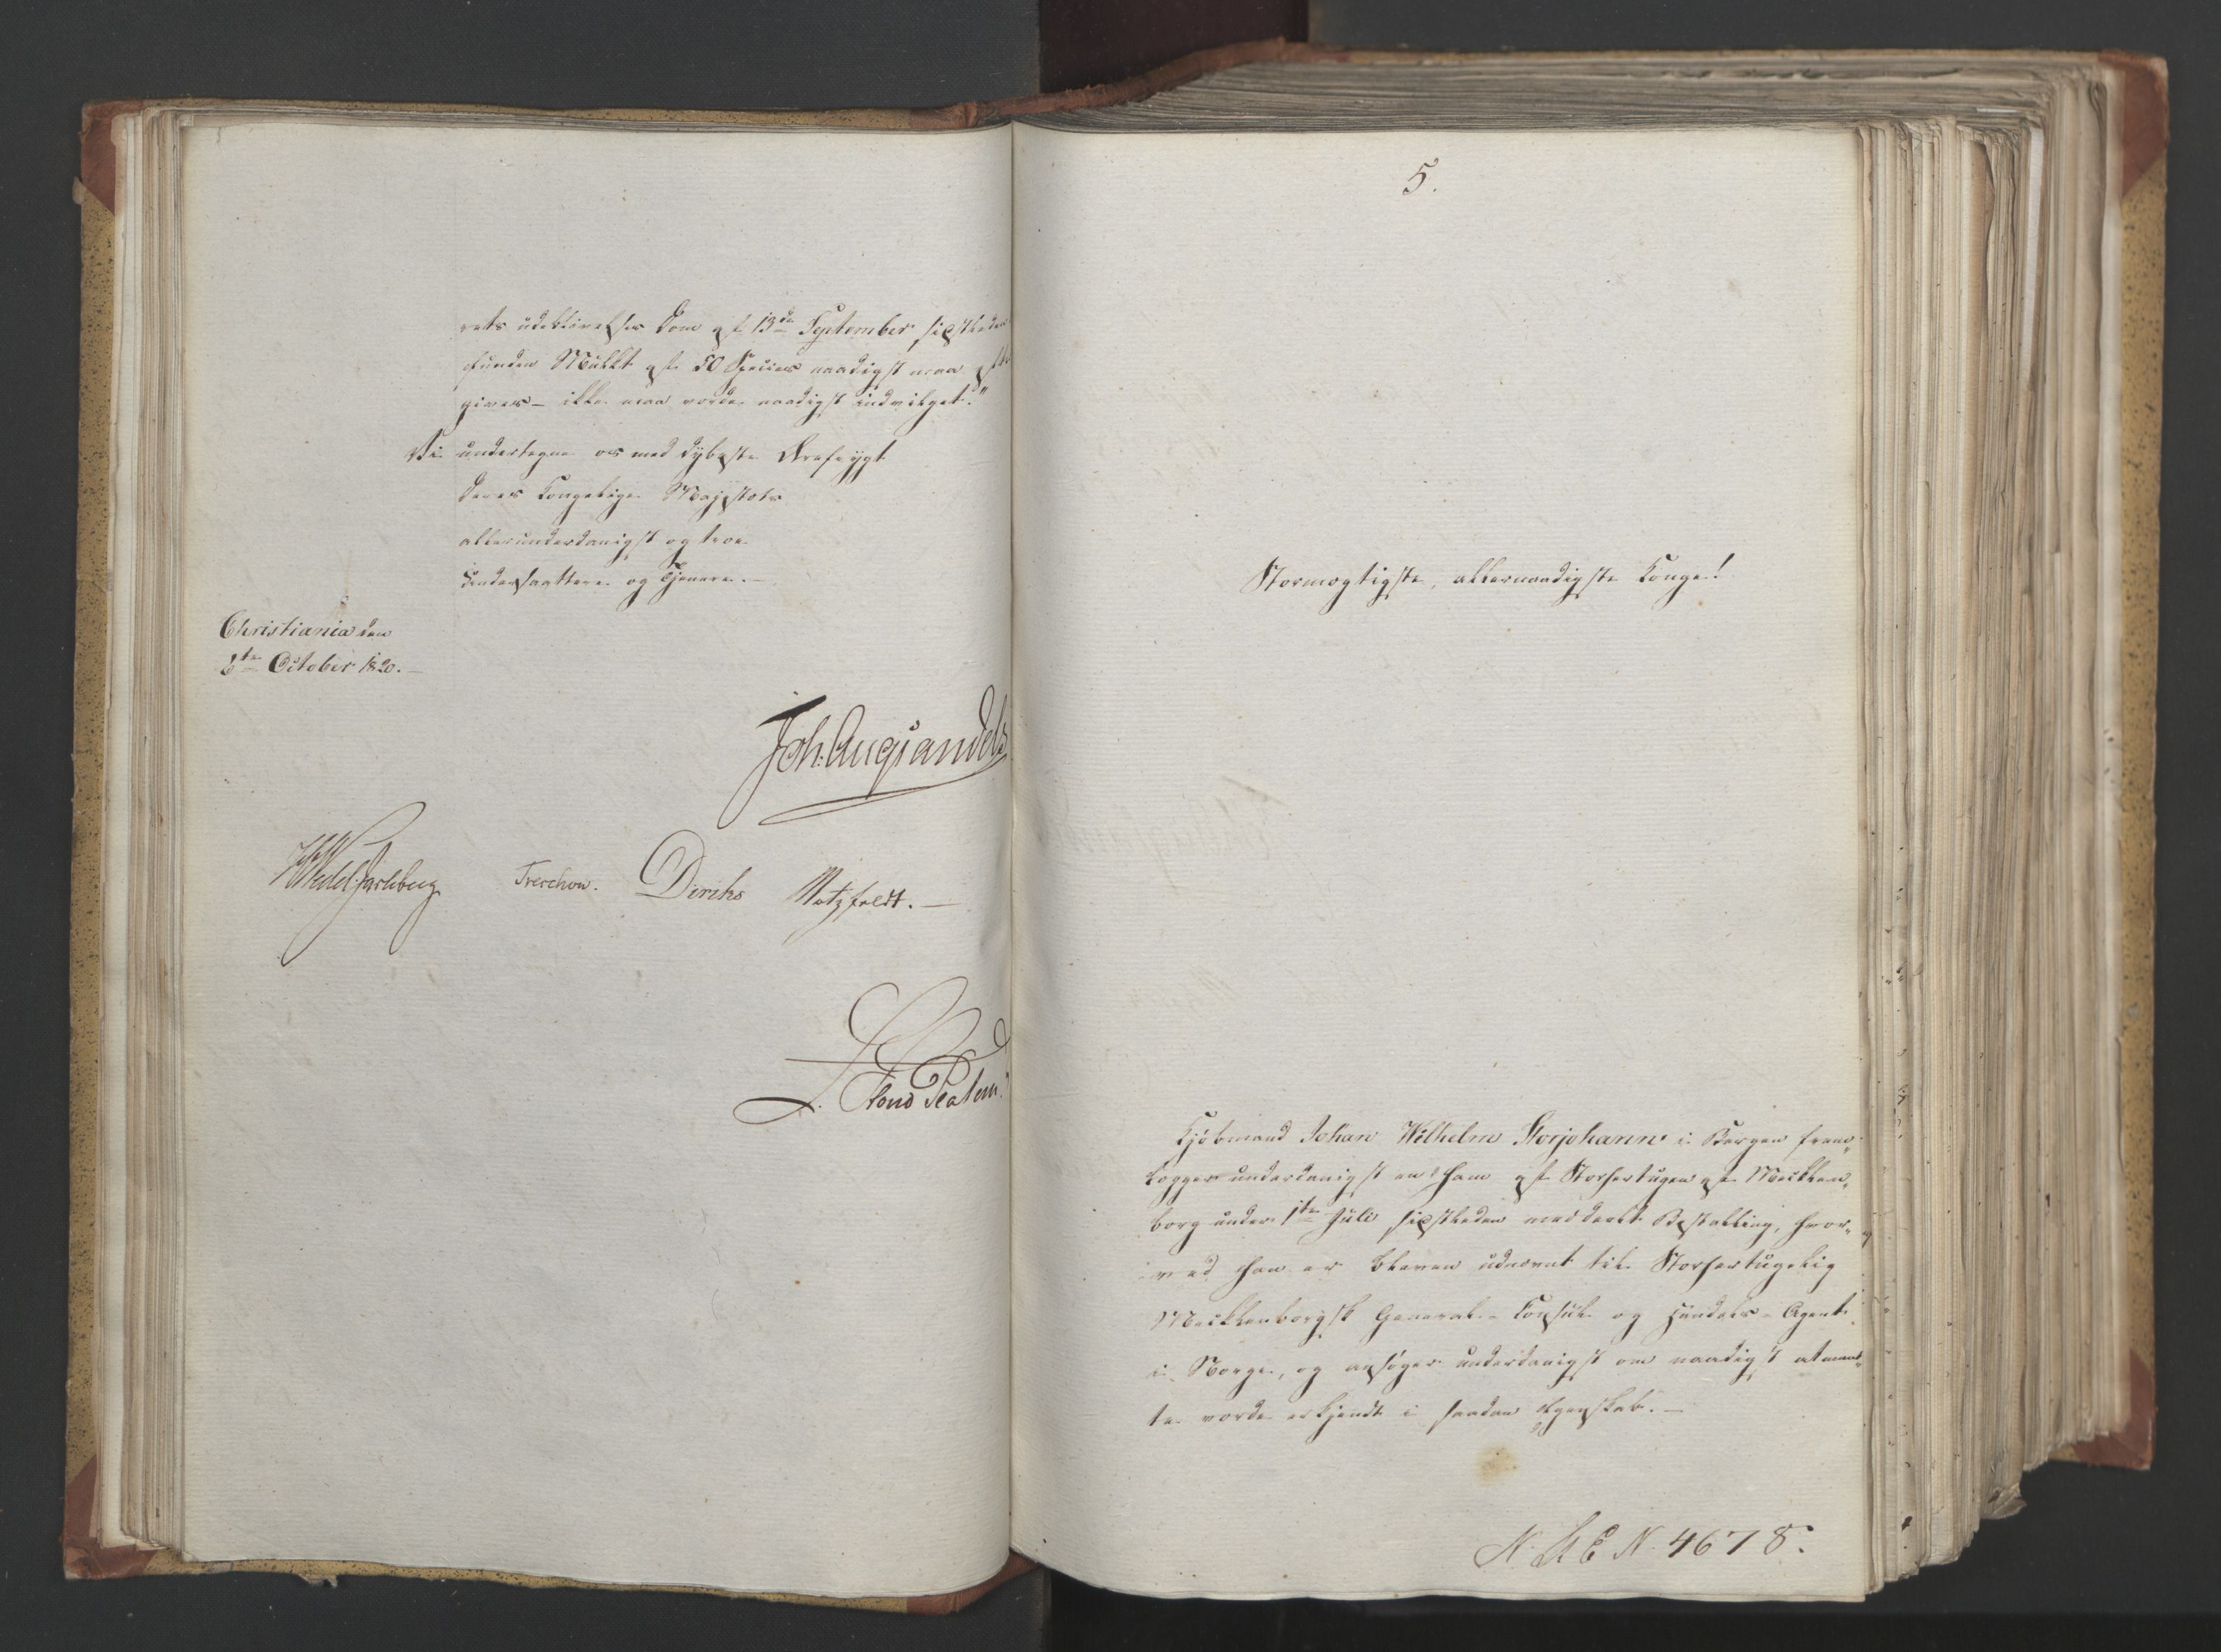 rets Udeblivelses Dom af 13de September sidstleden
funden Mulkt af 50 Species naadigst maa efter
gives – ikke maa vorde naadigst indvilget."
Vi undertegne os med dybeste Ærefrygt
Deres Kongelige Majestæts
allerunderdanigst og troe
Undersaattere og Tjenere. –
Christiania den
6te October 1820. –
Joh. Aug Sandels
HWedel Jarlsberg Treschow. Diriks Motzfeldt. –
L. Stoud Platou
5.
Stormægtigste, allernaadigste Konge!
Kjøbmand Johan Wilhelm Storjohann i Bergen frem„
lægger underdanigst en ham af Storhertugen af Mecklen„
borg under 1te Juli sidstleden meddeelt Bestalling, hvor„
ved han er bleven udnævnt til Storhertugelig
Mecklenborgsk General-Konsul og Handels-Agent
i Norge, og ansøger underdanigst om naadigst at maat„
te vorde erkjendt i saadan Egenskab. –
N. A E N. 4678.